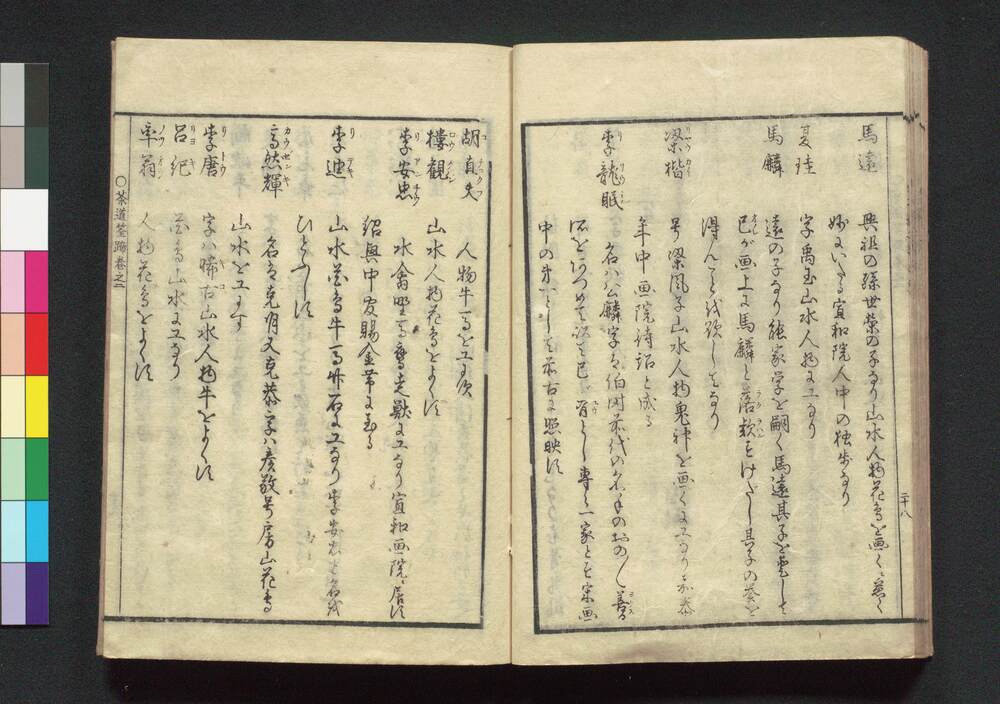 馬遠　興祖の孫世榮の子なり山水人物花鳥を画く甚く
妙にいたる宣和院人中の独歩なり
夏珪　字禹玉山水人物に工なり
馬麟　遠の子なり能家学を嗣く馬遠其子を愛して
已が画上に馬麟と落款をはげまし其子の誉を
得んことを欲しとなり
梁楷　号梁風子山水人物鬼神を画くに工なり嘉泰
年中画院待詔と成る
李龍眠　名ハ公麟字ハ伯時前代の名手のおの〳〵善る
所をあつめて以て已が有とし専ら一家とす宋画
中の第一とし前古に照映す
二十八
胡直夫　人物牛馬を工にす
樓観　山水人物花鳥をよくす
李安忠　水禽野馬鷹走獣に工なり宣和画院に居す
紹興中賜金帯に至る
李迪　山水花鳥牛馬竹石に工なり李安忠と名を
ひとしくす
高然輝　名は克明又克恭字ハ彦敬号房山花鳥
山水を工にす
李唐　字ハ晞古山水人物牛をよくす
呂紀　花鳥山水に工なり
率翁　人物花鳥をよくす
○茶道筌蹄巻之二